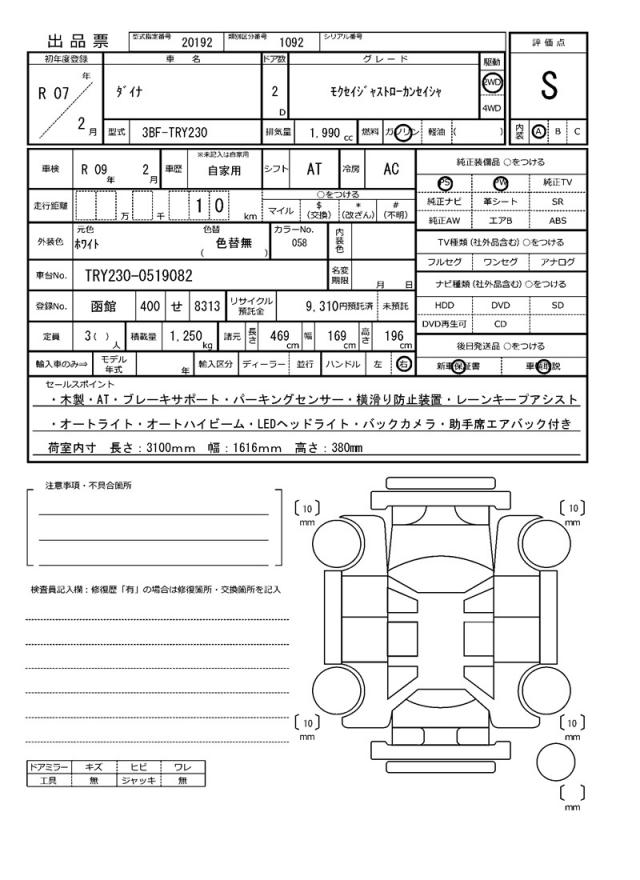 出品票 型式指定番号 20192 類別区分番号 1092 シリアル番号
評価点
初年度登録 車名 ドア数 グレード 駆動
R 07 年 2 月
ﾀﾞｲﾅ
2 D
ﾓｸｾｲｼﾞｬｽﾄﾛｰｶﾝｾｲｼｬ
2WD
4WD
S
型式 3BF-TRY230 排気量 1.990 cc 燃料 ガソリン 軽油 ( )
内装 A B C
車検 R 09 年 2 月 車歴 ※未記入は自家用 自家用 シフト AT 冷房 AC
純正装備品 ○をつける
PS PW 純正TV
純正ナビ 革シート SR
純正AW エアB ABS
走行距離 万 千 1 0 km
○をつける
マイル $ (交換) * (改ざん) # (不明)
外装色 元色 ﾎﾜｲﾄ 色替 ( 色替無 ) カラーNo. 058 内装色
TV種類 (社外品含む) ○をつける
フルセグ ワンセグ アナログ
車台No. TRY230-0519082 名変期限 月 日
ナビ種類 (社外品含む) ○をつける
HDD DVD SD
DVD再生可 CD
登録No. 函館 400 せ 8313 リサイクル預託金 9,310円預託済 未預託
定員 3( ) 人 積載量 1,250 kg 諸元 長さ 469 cm 幅 169 cm 高さ 196 cm
後日発送品 ○をつける
新車保証書
輸入車のみ⇒ モデル年式 年 輸入区分 ディーラー 並行 ハンドル 左 右
セールスポイント
・木製・AT・ブレーキサポート・パーキングセンサー・横滑り防止装置・レーンキープアシスト
・オートライト・オートハイビーム・LEDヘッドライト・バックカメラ・助手席エアバック付き
荷室内寸 長さ：3100mm 幅：1616mm 高さ：380mm
注意事項・不具合箇所
〔10〕mm
〔10〕mm
検査員記入欄：修復歴「有」の場合は修復箇所・交換箇所を記入
〔10〕mm
〔10〕mm
ドアミラー キズ ヒビ ワレ
工具 無 ジャッキ 無
〔 〕mm